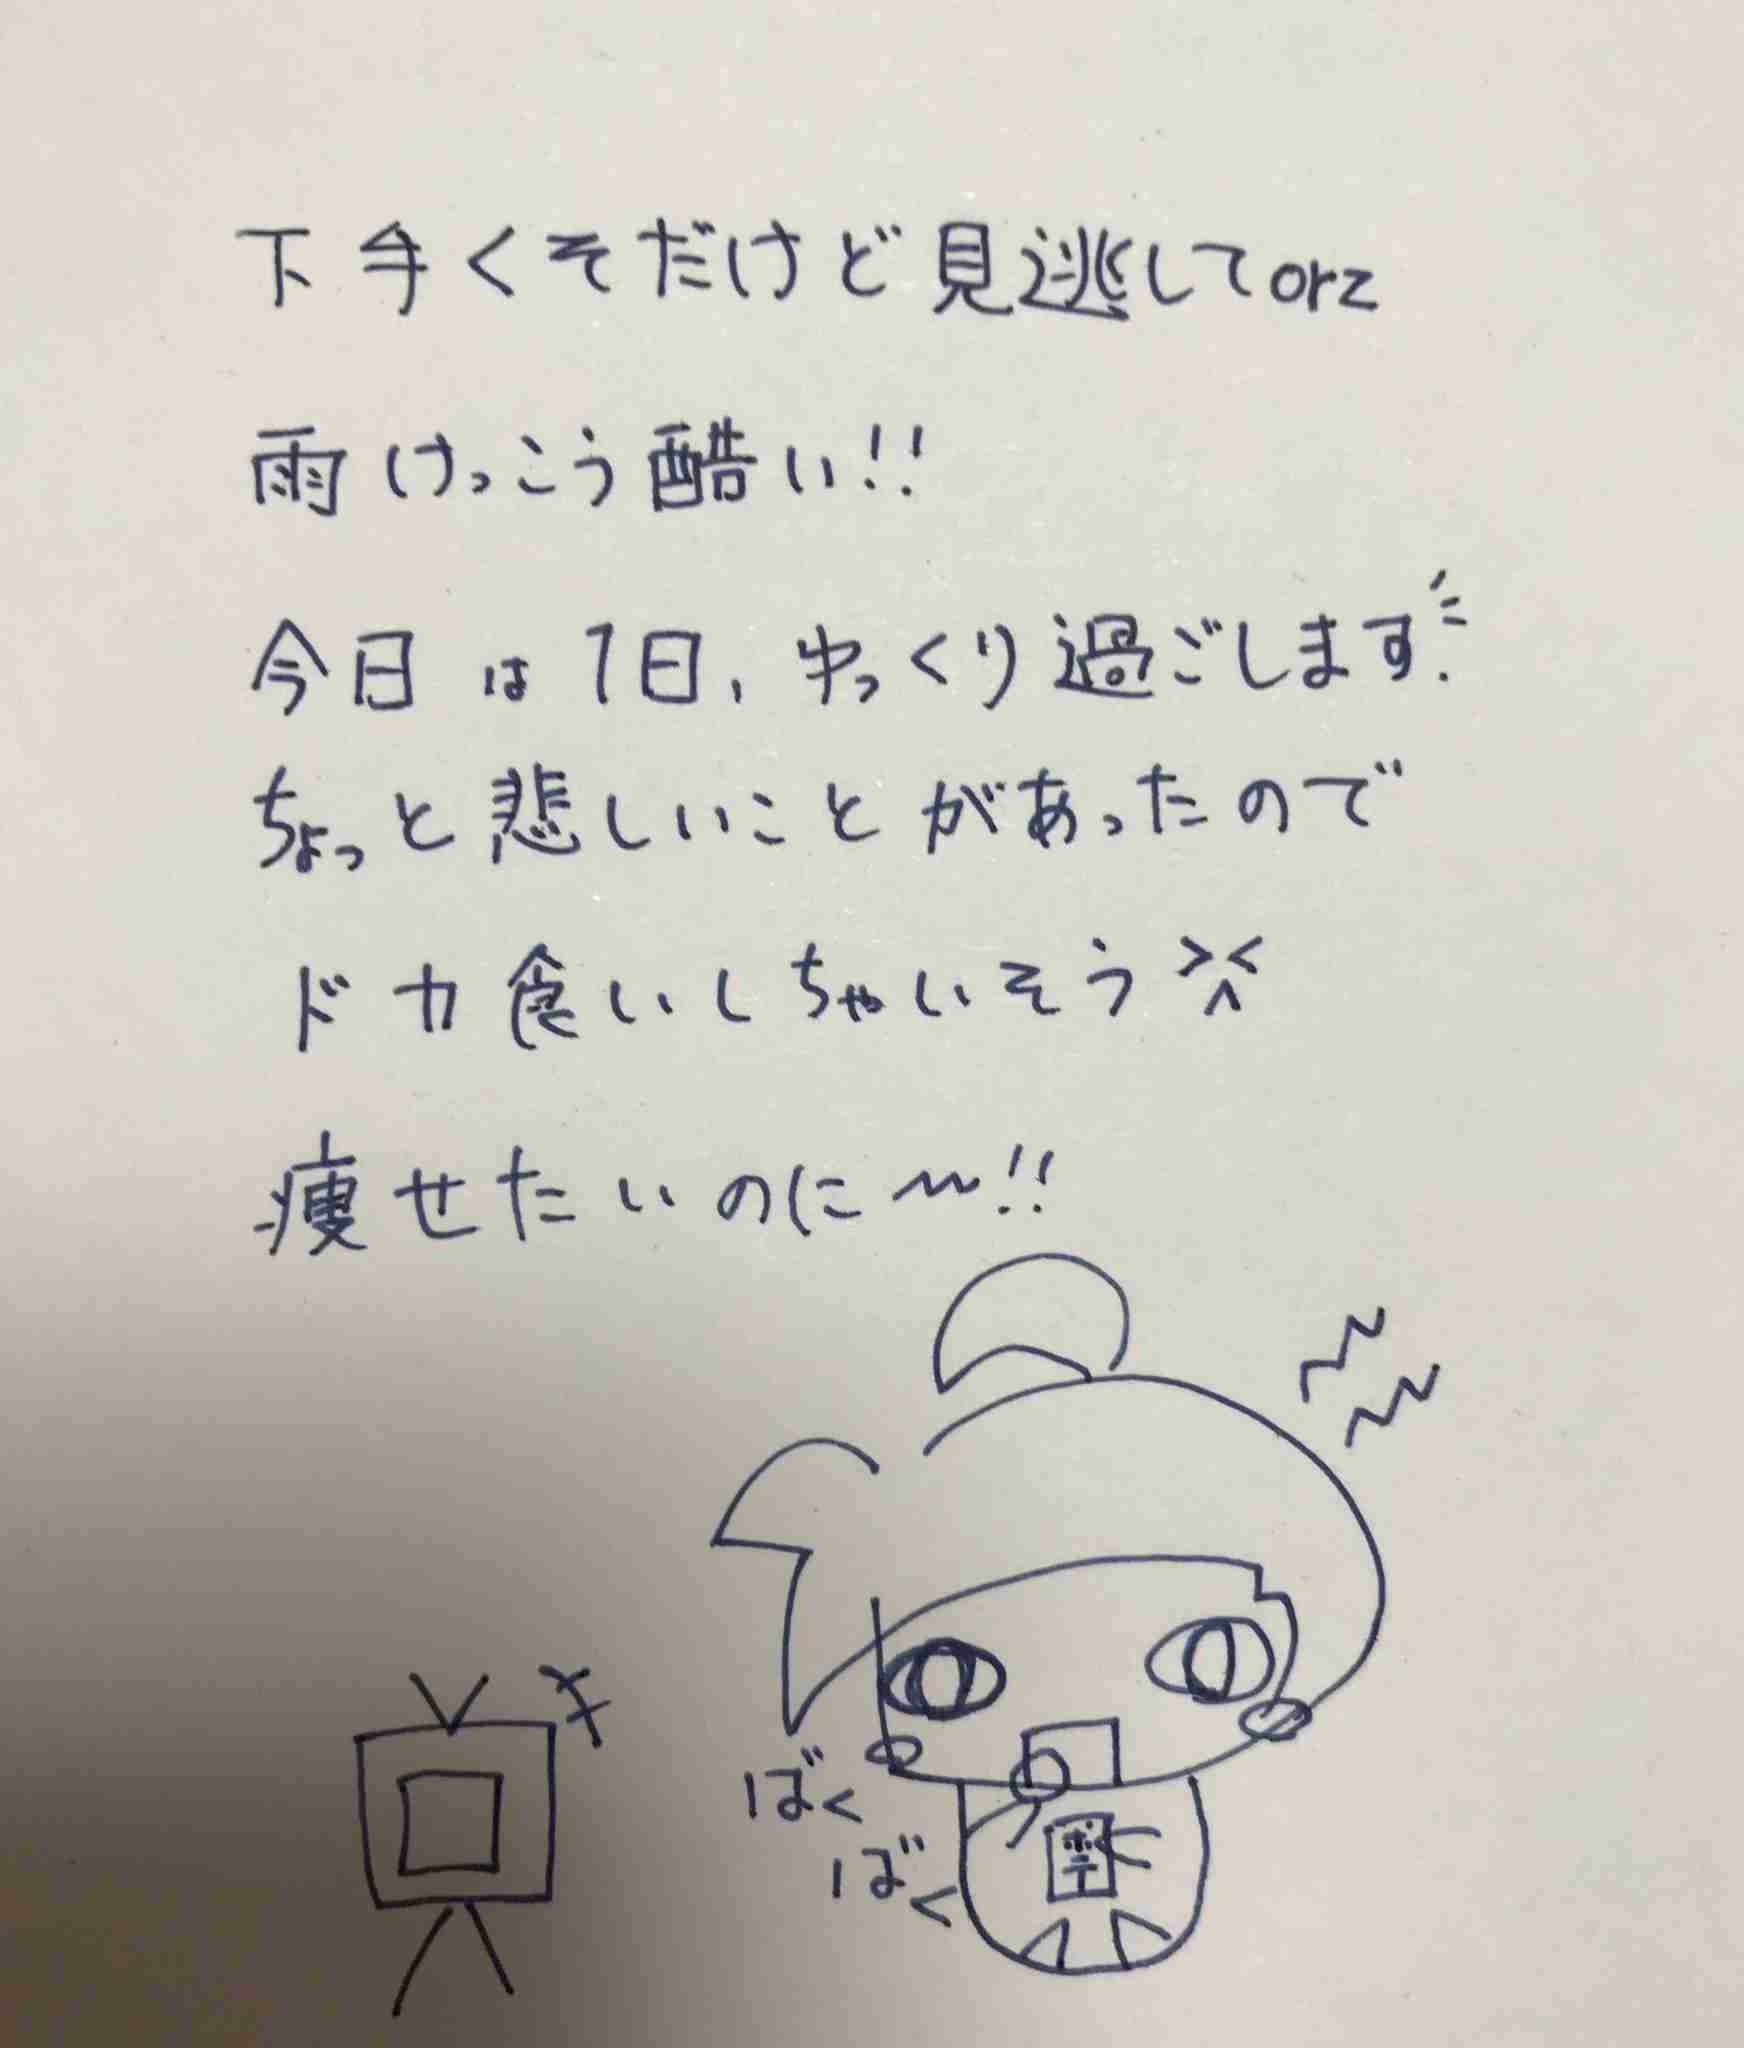 下手くそだけど見逃してorz
雨けっこう酷い!!
今日は1日、ゆっくり過ごします!
ちょっと悲しいことがあったので
ドカ食いしちゃいそう><
痩せたいのに〜!!
ばく
ばく
ポテ